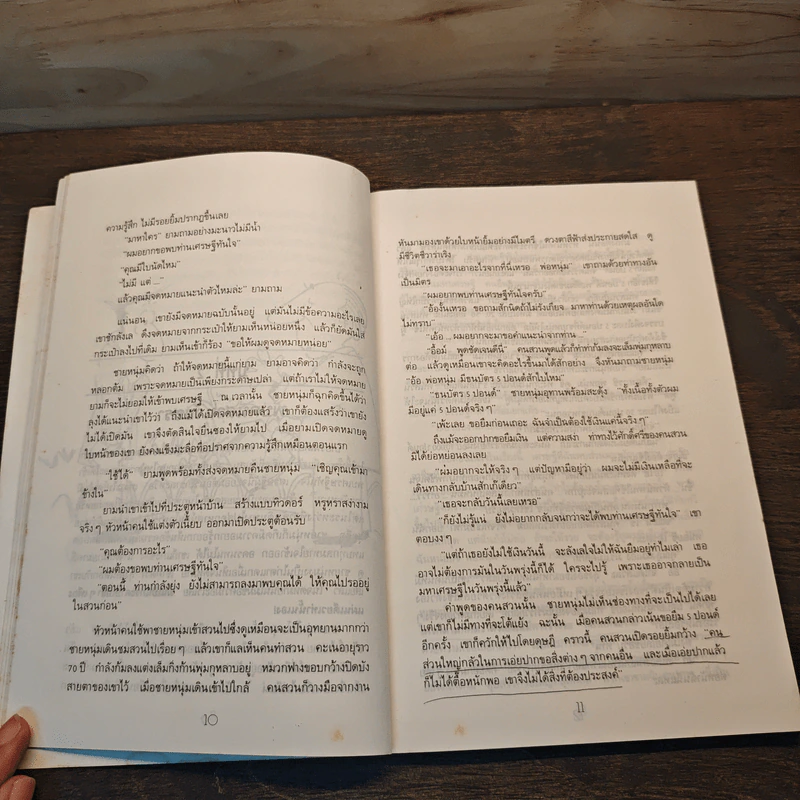 ความรู้สึก ไม่มีรอยยิ้มปรากฏขึ้นเลย
"มาหาใคร" ยามถามอย่างมะนาวไม่มีน้ำ
"ผมอยากขอพบท่านเศรษฐีทันใจ"
"คุณมีใบนัดไหม"
"ไม่มี แต่ ..."
แล้วคุณมีจดหมายแนะนำตัวไหมล่ะ" ยามถาม
แน่นอน เขายังมีจดหมายฉบับนั้นอยู่ แต่มันไม่มีข้อความอะไรเลย
เขาชักลังเล ดึงจดหมายจากกระเป๋าให้ยามเห็นหน่อยหนึ่ง แล้วก็ยัดมันใส่
กระเป๋าลงไปที่เดิม ยามเห็นเข้าก็ร้อง "ขอให้ผมดูจดหมายหน่อย"
ชายหนุ่มคิดว่า ถ้าให้จดหมายนี้แก่ยาม ยามอาจคิดว่า กำลังจะถูก
หลอกต้ม เพราะจดหมายเป็นเพียงกระดาษเปล่า แต่ถ้าเราไม่ให้จดหมาย
ยามก็จะไม่ยอมให้เข้าพบเศรษฐี ... ณ เวลานั้น ชายหนุ่มก็ฉุกคิดขึ้นได้ว่า
ลุงได้แนะนำเขาไว้ว่า ถึงแม้ได้เปิดจดหมายแล้ว เขาก็ต้องแสร้งว่าเขายัง
ไม่ได้เปิดมัน เขาจึงตัดสินใจยื่นซองให้ยามไป เมื่อยามเปิดจดหมายดู
ใบหน้าของเขา ยังคงแข็งมะลื่อทื่อปราศจากความรู้สึกเหมือนตอนแรก
"ใช้ได้" ยามพูดพร้อมทั้งส่งจดหมายคืนชายหนุ่ม "เชิญคุณเข้ามา
ข้างใน"
ยามนำเขาเข้าไปที่ประตูหน้าบ้าน สร้างแบบทิวดอร์ หรูหราสง่างาม
จริงๆ หัวหน้าคนใช้แต่งตัวเนี้ยบ ออกมาเปิดประตูต้อนรับ
"คุณต้องการอะไร"
"ผมต้องขอพบท่านเศรษฐีทันใจ"
"ตอนนี้ ท่านกำลังยุ่ง ยังไม่สามารถลงมาพบคุณได้ ให้คุณไปรออยู่
ในสวนก่อน"
หัวหน้าคนใช้พาชายหนุ่มเข้าสวนไปซึ่งดูเหมือนจะเป็นอุทยานมากกว่า
ชายหนุ่มเดินชมสวนไปเรื่อยๆ แล้วเขาก็แลเห็นคนทำสวน คะเนอายุราว
70 ปี กำลังก้มลงแต่งเล็มกิ่งก้านพุ่มกุหลาบอยู่ หมวกฟางขอบกว้างปิดบัง
สายตาของเขาไว้ เมื่อชายหนุ่มเดินเข้าไปใกล้ คนสวนก็วางมือจากงาน
10
หันมามองเขาด้วยใบหน้ายิ้มอย่างมีไมตรี ดวงตาสีฟ้าส่งประกายสดใส ดู
มีชีวิตชีวาร่าเริง
"เธอจะมาเอาอะไรจากที่นี่เหรอ พ่อหนุ่ม" เขาถามด้วยท่าทางอัน
เป็นมิตร
"ผมอยากพบท่านเศรษฐีทันใจครับ"
"อ้องั้นเหรอ ขอถามสักนิดถ้าไม่รังเกียจ มาหาท่านด้วยเหตุผลอันใด
ไม่ทราบ"
"เอ้อ ... ผมอยากจะมาขอคำแนะนำจากท่าน ..."
"อืมม์ พูดชัดเจนดีนี่" คนสวนพูดแล้วก็ทำท่าก้มลงจะเล็มพุ่มกุหลาบ
ต่อ แล้วดูเหมือนเขาจะคิดอะไรขึ้นมาได้สักอย่าง จึงหันมาถามชายหนุ่ม
"อ้อ พ่อหนุ่ม มีธนบัตร 5 ปอนด์สักใบไหม"
"ธนบัตร 5 ปอนด์" ชายหนุ่มอุทานพร้อมสะดุ้ง "ทั้งเนื้อทั้งตัวผม
มีอยู่แค่ 5 ปอนด์จริงๆ"
"เพ๊ะเลย ขอยืมก่อนเถอะ ฉันจำเป็นต้องใช้เงินแค่นี้จริงๆ"
ถึงแม้จะออกปากขอยืมเงิน แต่ความสง่า ท่าทางไว้ศักดิ์ศรีของคนสวน
มิได้ย่อหย่อนลงเลย
"ผมอยากจะให้จริงๆ แต่ปัญหามีอยู่ว่า ผมจะไม่มีเงินเหลือที่จะ
เดินทางกลับบ้านสักกี๊เดียว"
"เธอจะกลับวันนี้เลยเหรอ"
"ก็ยังไม่รู้แน่ ยังไม่อยากกลับจนกว่าจะได้พบท่านเศรษฐีทันใจ" เขา
ตอบงงๆ
"แต่ถ้าเธอยังไม่ใช้เงินวันนี้ จะลังเลใจไม่ให้ฉันยืมอยู่ทำไมเล่า เธอ
อาจไม่ต้องการมันในวันพรุ่งนี้ก็ได้ ใครจะไปรู้ เพราะเธออาจกลายเป็น
มหาเศรษฐีในวันพรุ่งนี้แล้ว"
คำพูดของคนสวนนั้น ชายหนุ่มไม่เห็นช่องทางที่จะเป็นไปได้เลย
แต่เขาก็ไม่มีทางที่จะโต้แย้ง ฉะนั้น เมื่อคนสวนกล่าวเน้นขอยืม 5 ปอนด์
อีกครั้ง เขาก็ควักให้ไปโดยดุษฎี คราวนี้ คนสวนเปิดรอยยิ้มกว้าง "คน
ส่วนใหญ่กลัวในการเอ่ยปากขอสิ่งต่างๆ จากคนอื่น และเมื่อเอ่ยปากแล้ว
ก็ไม่ได้ตื๊อหนักพอ เขาจึงไม่ได้สิ่งที่ต้องประสงค์"
11